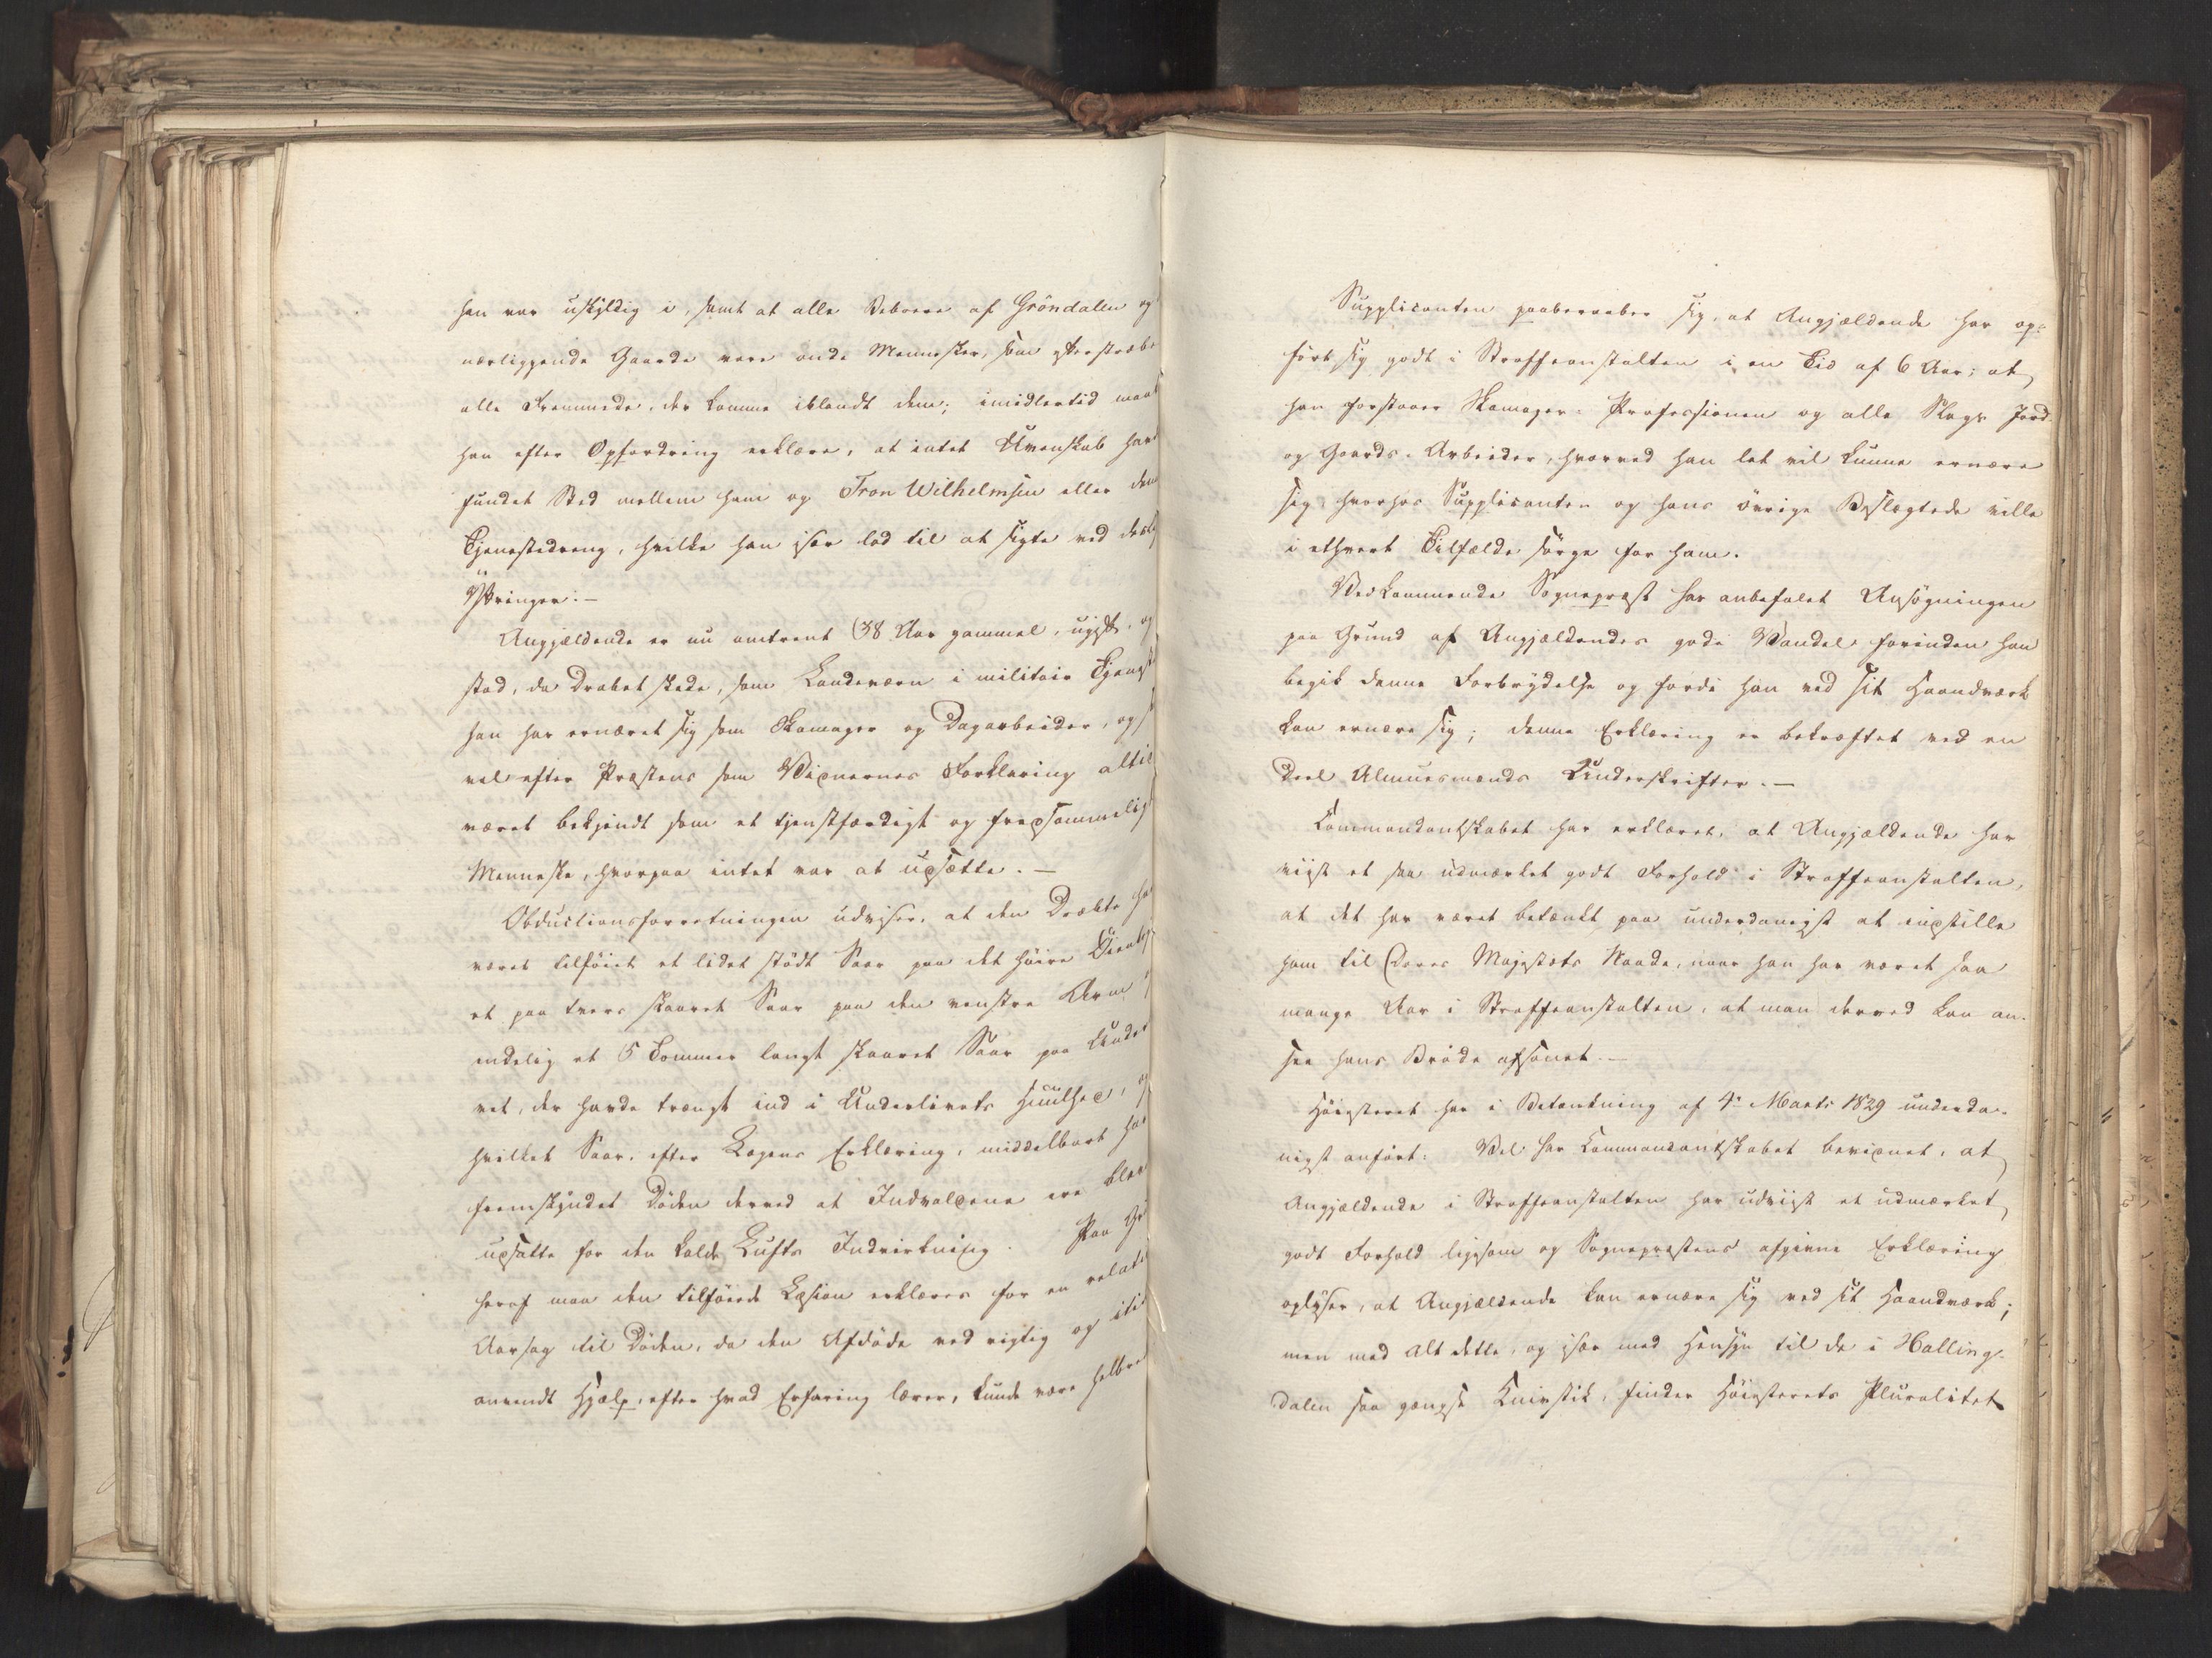 han var uskyldig i, samt at alle Beboere af Gröndalen og
nærliggende Gaarde vare onde Mennesker, som efterstræbe
alle Fremmede, der komme iblandt dem; imidlertid maat
han efter Opfordring erklære, at intet Uvenskab havd
fundet Sted mellem ham og Tron Wilhelmsen eller den
Tjenestedreng, hvilke han især lod til at sigte ved disse
Yttringer.—
Angjældende er nu omtrent 38 Aar gammel, ugift, og
stod, da Drabet skede, som Landeværn i militair Tjenest
han har ernæret sig som Skomager og Dagarbeider, og
vel efter Præstens som Vidnernes Forklaring altid
været bekjendt som et tjenstfærdigt og fredsommeligt
Menneske, hvorpaa intet var at udsætte.—
Obductionsforretningen udviser, at den Dræbte ha
været tilföiet et lidet stödt Saar paa det höire
et paa tvers skaaret Saar paa den venstre Arm
endelig et 5 Tommer langt skaaret Saar paa Under
vet, der havde trængt ind i Underlivets Huulhed, og
hvilket Saar, efter Lægens Erklæring, middelbart har
fremskyndet Döden derved at Indvoldene ere blev
udsatte for den kolde Lufts Indvirkning. Paa Gr
heraf maa den tilföiede Læsion erklæres for en relati
Aarsag til Döden, da den Afdöde ved rigtig og iti
anvendt Hjælp, efter hvad Erfaring lærer, kunde være helbre
Supplicanten paaberaaber sig, at Angjældende har op-
fört sig godt i Straffeanstalten i en Tid af 6 Aar; at
han forstaaer Skomager-Professionen og alle Slags Jord
og Gaards-Arbeider, hvorved han let vil kunne ernære
sig, hvorhos Supplicanten og hans övrige Beslægtede ville
i ethvert Tilfælde sörge for ham.
Vedkommende Sognepræst har anbefalet Ansögningen
paa Grund af Angjældendes gode Vandel forinden han
begik denne Forbrydelse og fordi han ved sit Haandværk
kan ernære sig; denne Erklæring er bekræftet ved en
Deel Almuesmænds Underskrifter.—
Commandantskabet har erklæret, at Angjældende har
viist et saa udmærket godt Forhold i Straffeanstalten,
at det har været betænkt paa underdanigst at indstille
ham til Deres Majestæts Naade, naar han har været saa
mange Aar i Straffeanstalten, at man derved kan an-
see hans Bröde afsonet.—
Höiesteret har i Betænkning af 4de Marts 1829 underda-
nigst anfört: Vel har Commandantskabet bevidnet, at
Angjældende i Straffeanstalten har udviist et udmærket
godt Forhold ligesom og Sognepræstens afgivne Erklæring
oplyser, at Angjældende kan ernære sig ved sit Haandværk;
men med alt dette, og især med Hensyn til de i Halling-
dalen saa gængse Knivstik, finder Höiesterets Pluralitet